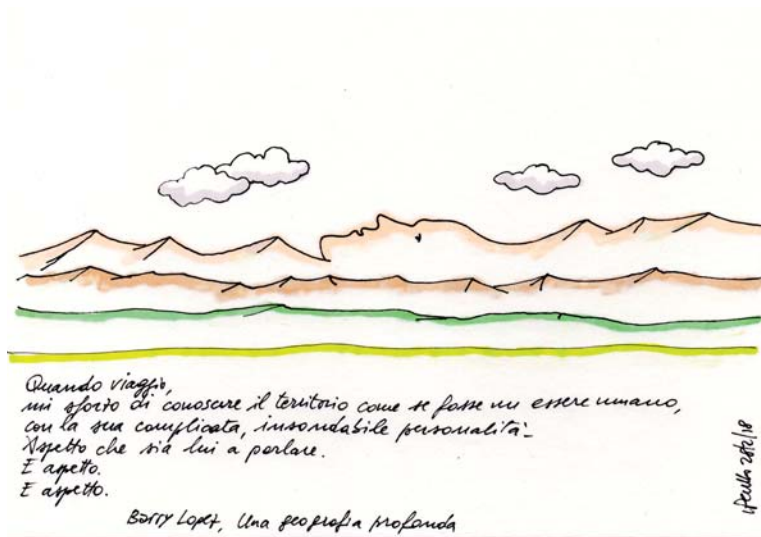 Quando viaggio,
mi sforzo di conoscere il territorio come se fosse un essere umano,
con la sua complicata, insondabile personalità_
Aspetto che sia lui a parlare.
E aspetto.
E aspetto.
Barry Lopez, Una geografia profonda